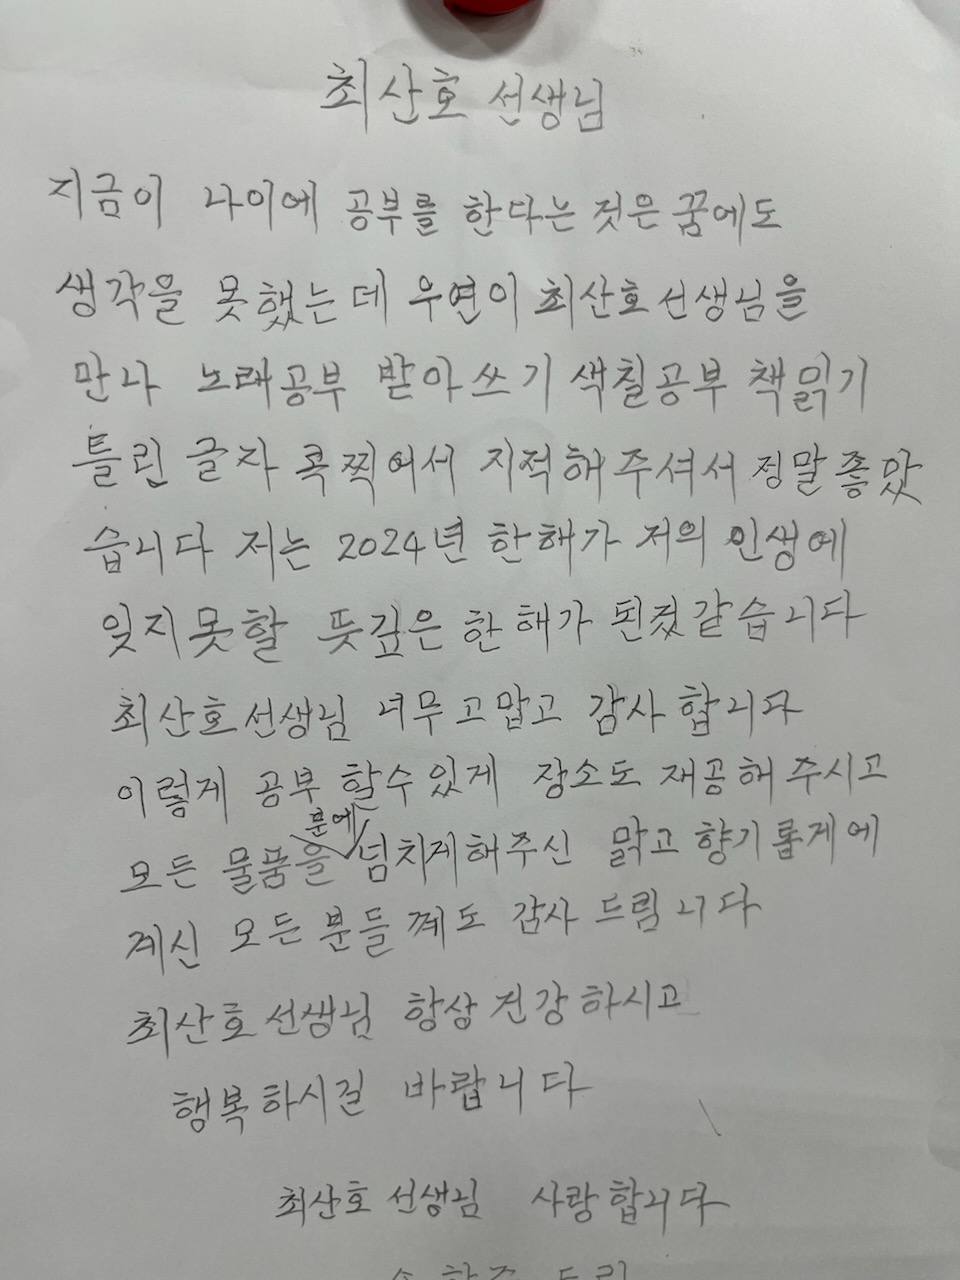 최산호 선생님
지금이 나이에 공부를 한다는 것은 꿈에도
생각을 못했는데 우연이 최산호선생님을
만나 노래공부 받아쓰기 색칠공부 책읽기
틀린 글자 콕찍어서 지적해주셔서 정말좋았
습니다 저는 2024년 한해가 저의 인생에
잊지못할 뜻깊은 한해가 된겄같습니다
최산호선생님 너무고맙고 감사합니다
이렇게 공부할수있게 장소도 재공해주시고
분에
모든 물품을 넘치게해주신 맑고향기롭게에
계신 모든분들께도 감사드림니다
최산호선생님 항상건강하시고
행복하시길 바랍니다
최산호선생님 사랑합니다